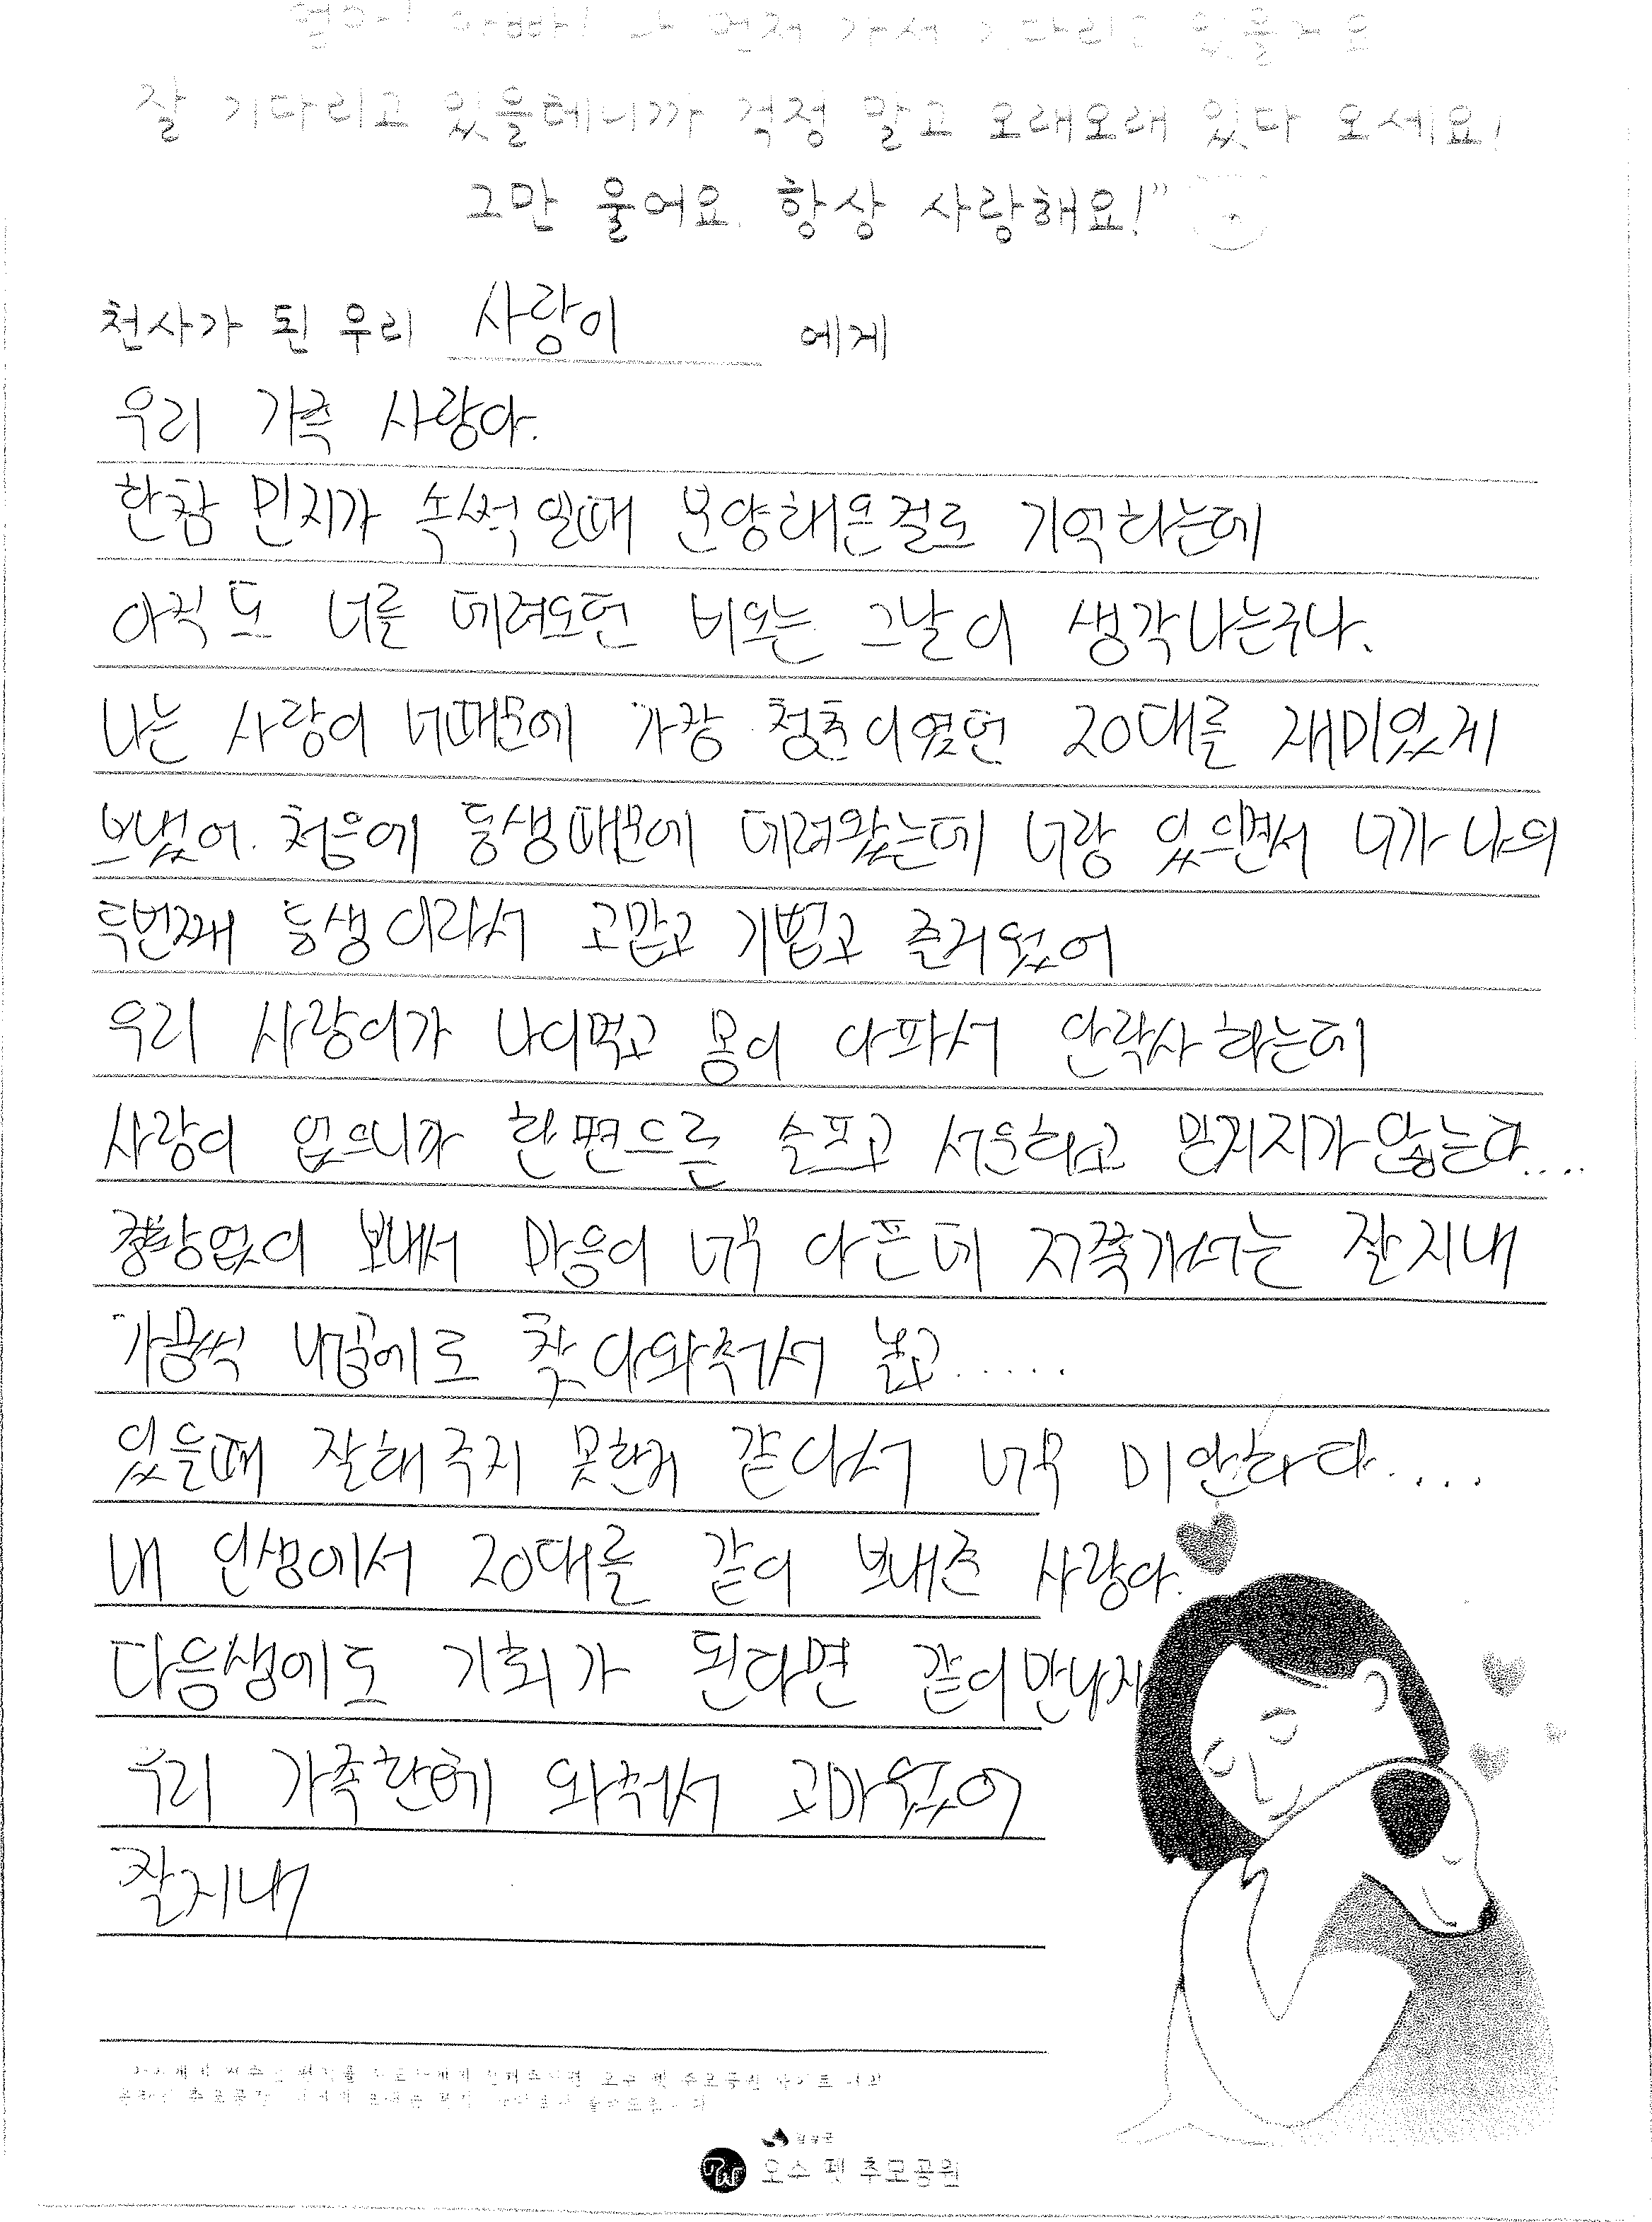 엄마! 아빠! 나 먼저 가서 기다리고 있을게요
잘 기다리고 있을테니까 걱정 말고 오래오래 있다 오세요!
그만 울어요. 항상 사랑해요!"
천사가 된 우리 사랑이 에게
우리 가족 사랑아.
한참 민지가 속썩일때 분양해온걸로 기억하는데
아직도 너를 데려오던 비오는 그날이 생각나는구나.
나는 사랑이 너때문에 가장 청춘이였던 20대를 재미있게
보냈어. 처음에 동생때문에 데려왔는데 너랑 있으면서 너가 나의
두번째 동생이라서 고맙고 기쁘고 즐거웠어
우리 사랑이가 나이먹고 몸이 아파서 안락사하는데
사랑이 없으니까 한편으론 슬프고 서운하고 믿겨지지가않는다....
경황없이 보내서 마음이 너무 아픈데 저쪽가서는 잘지내
가끔씩 내꿈에로 찾아와줘서 놀고.....
있을때 잘해주지 못한거 같아서 너무 미안하다....
내 인생에서 20대를 같이 보내준 사랑아.
다음생에도 기회가 된다면 같이만나자
우리 가족한테 와줘서 고마웠어
잘지내
오수 펫 추모공원